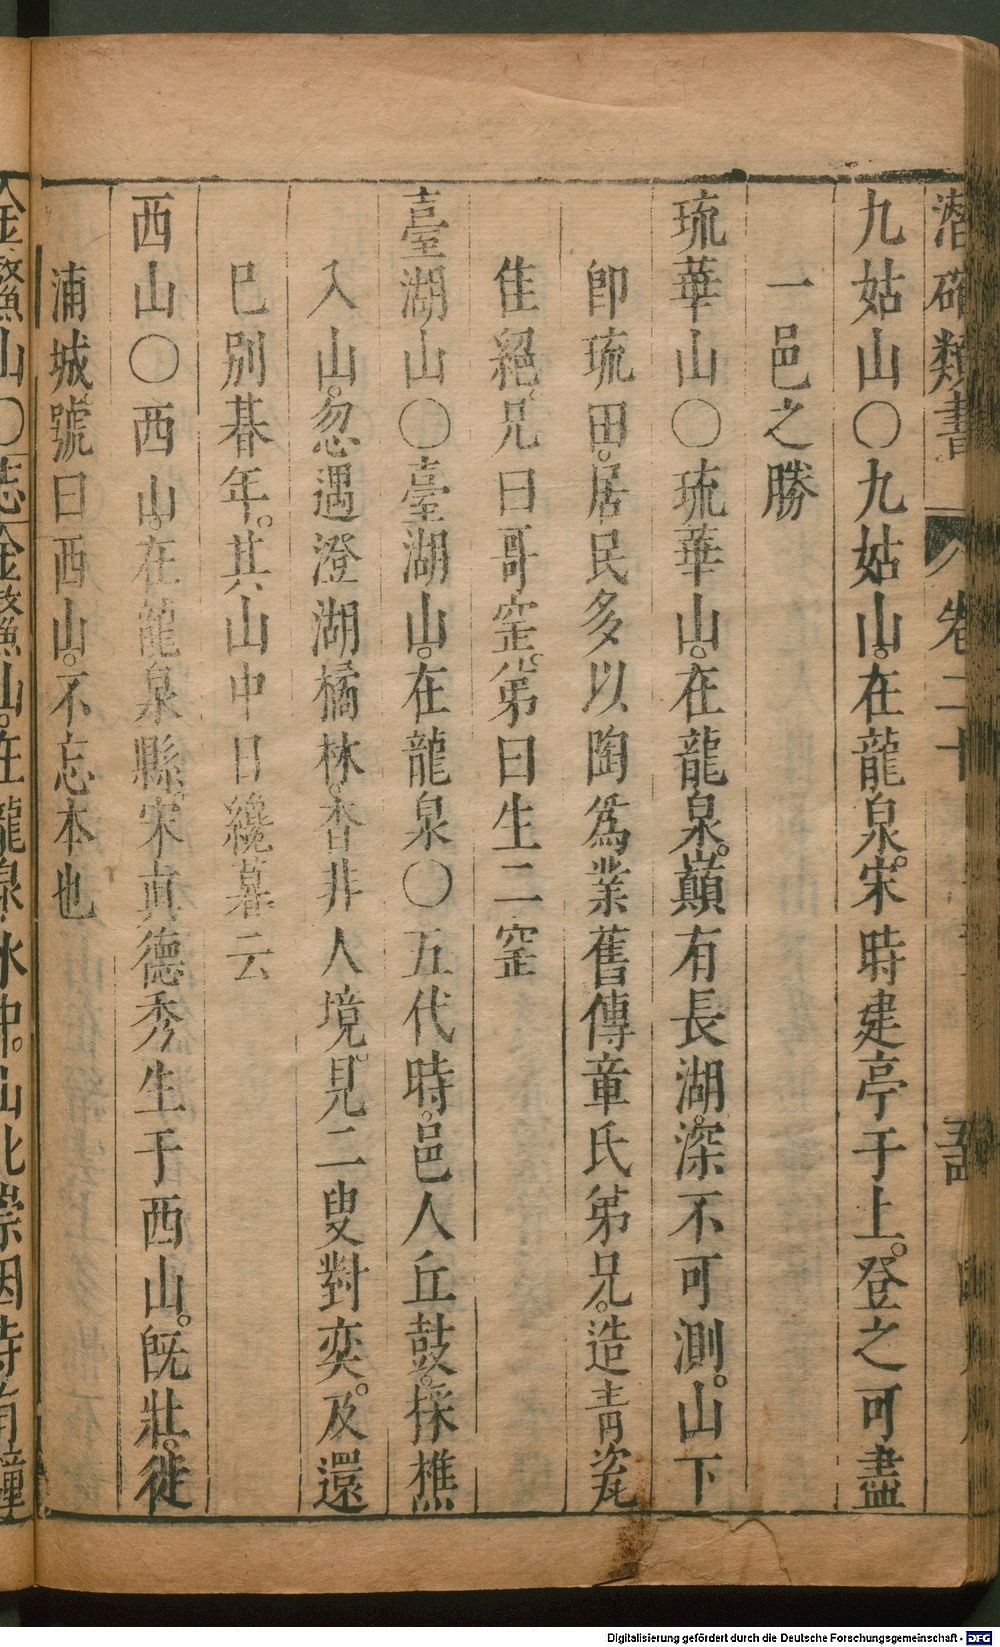 潛確類書 卷二十
九姑山〇九姑山。在龍泉。宋時建亭于上。登之可盡
一邑之勝
琉華山〇琉華山。在龍泉。巔有長湖。深不可測。山下
卽琉田。居民多以陶爲業舊傳章氏弟兄。造青瓷
隹絕。兄曰哥窑。弟曰生二窑
臺湖山〇臺湖山。在龍泉〇五代時。邑人丘鼓。採樵
入山。忽遇澄湖橘林。杳非人境。見二叟對奕。及還
巳別碁年。其山中日纔暮云
西山〇西山。在龍泉縣。宋真德秀生于西山。旣壯。徙
浦城。號曰西山。不忘本也
山〇 山。在龍泉水中。山北崇因寺有鐘
Digitalisierung gefördert durch die Deutsche Forschungsgemeinschaft - DFG